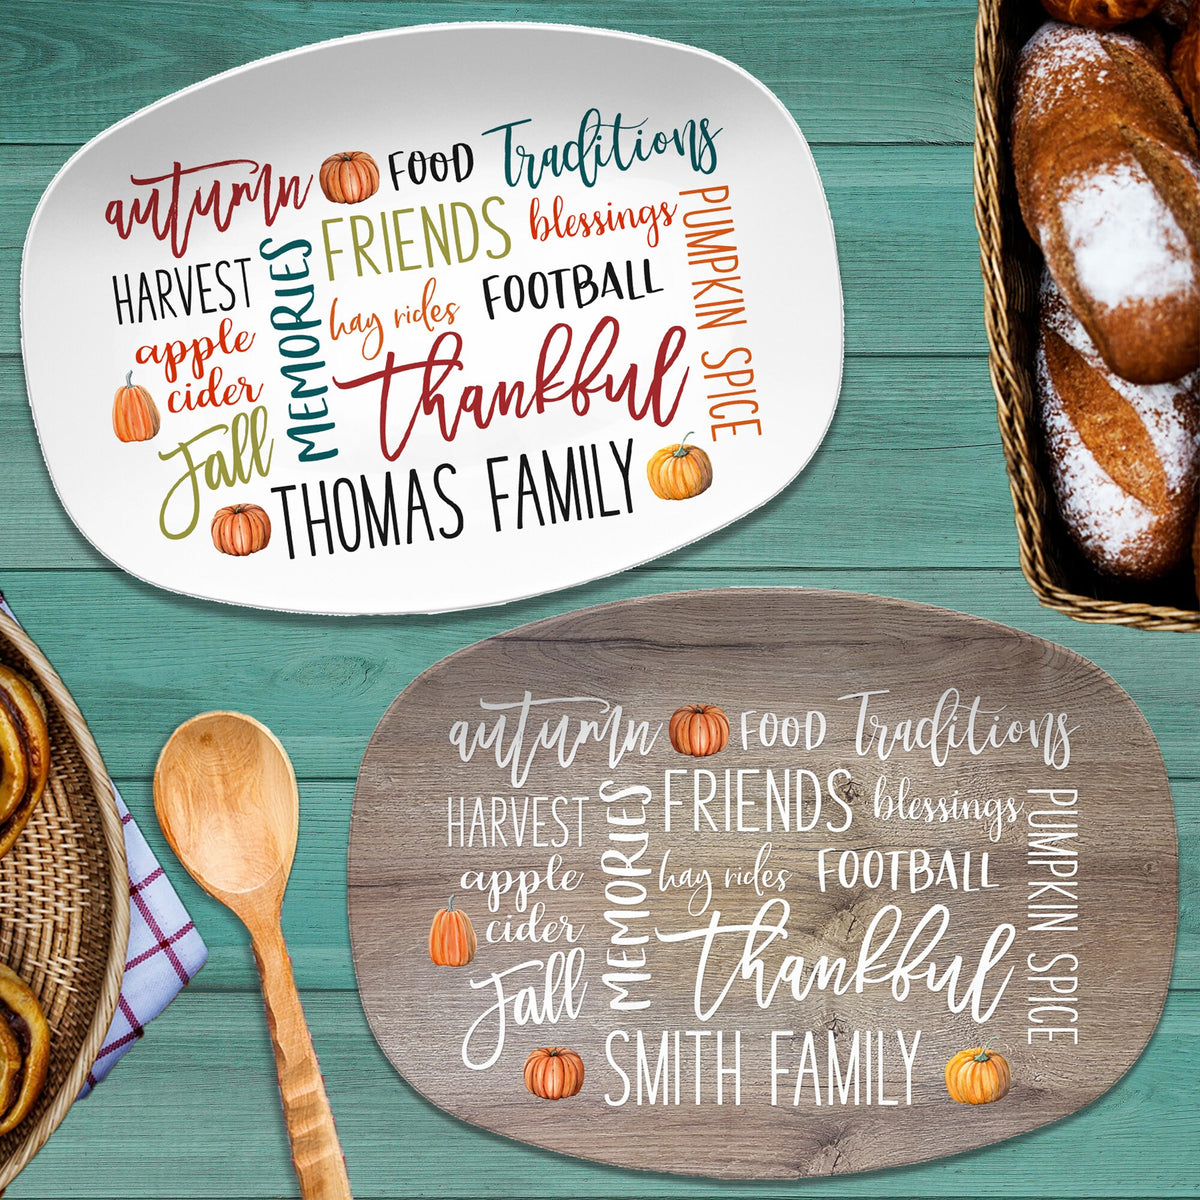 autumn FOOD Traditions
HARVEST MEMORIES FRIENDS blessings PUMPKIN SPICE
apple cider hay rides FOOTBALL
Fall thankful
THOMAS FAMILY
autumn FOOD Traditions
HARVEST MEMORIES FRIENDS blessings PUMPKIN SPICE
apple cider hay rides FOOTBALL
Fall thankful
SMITH FAMILY